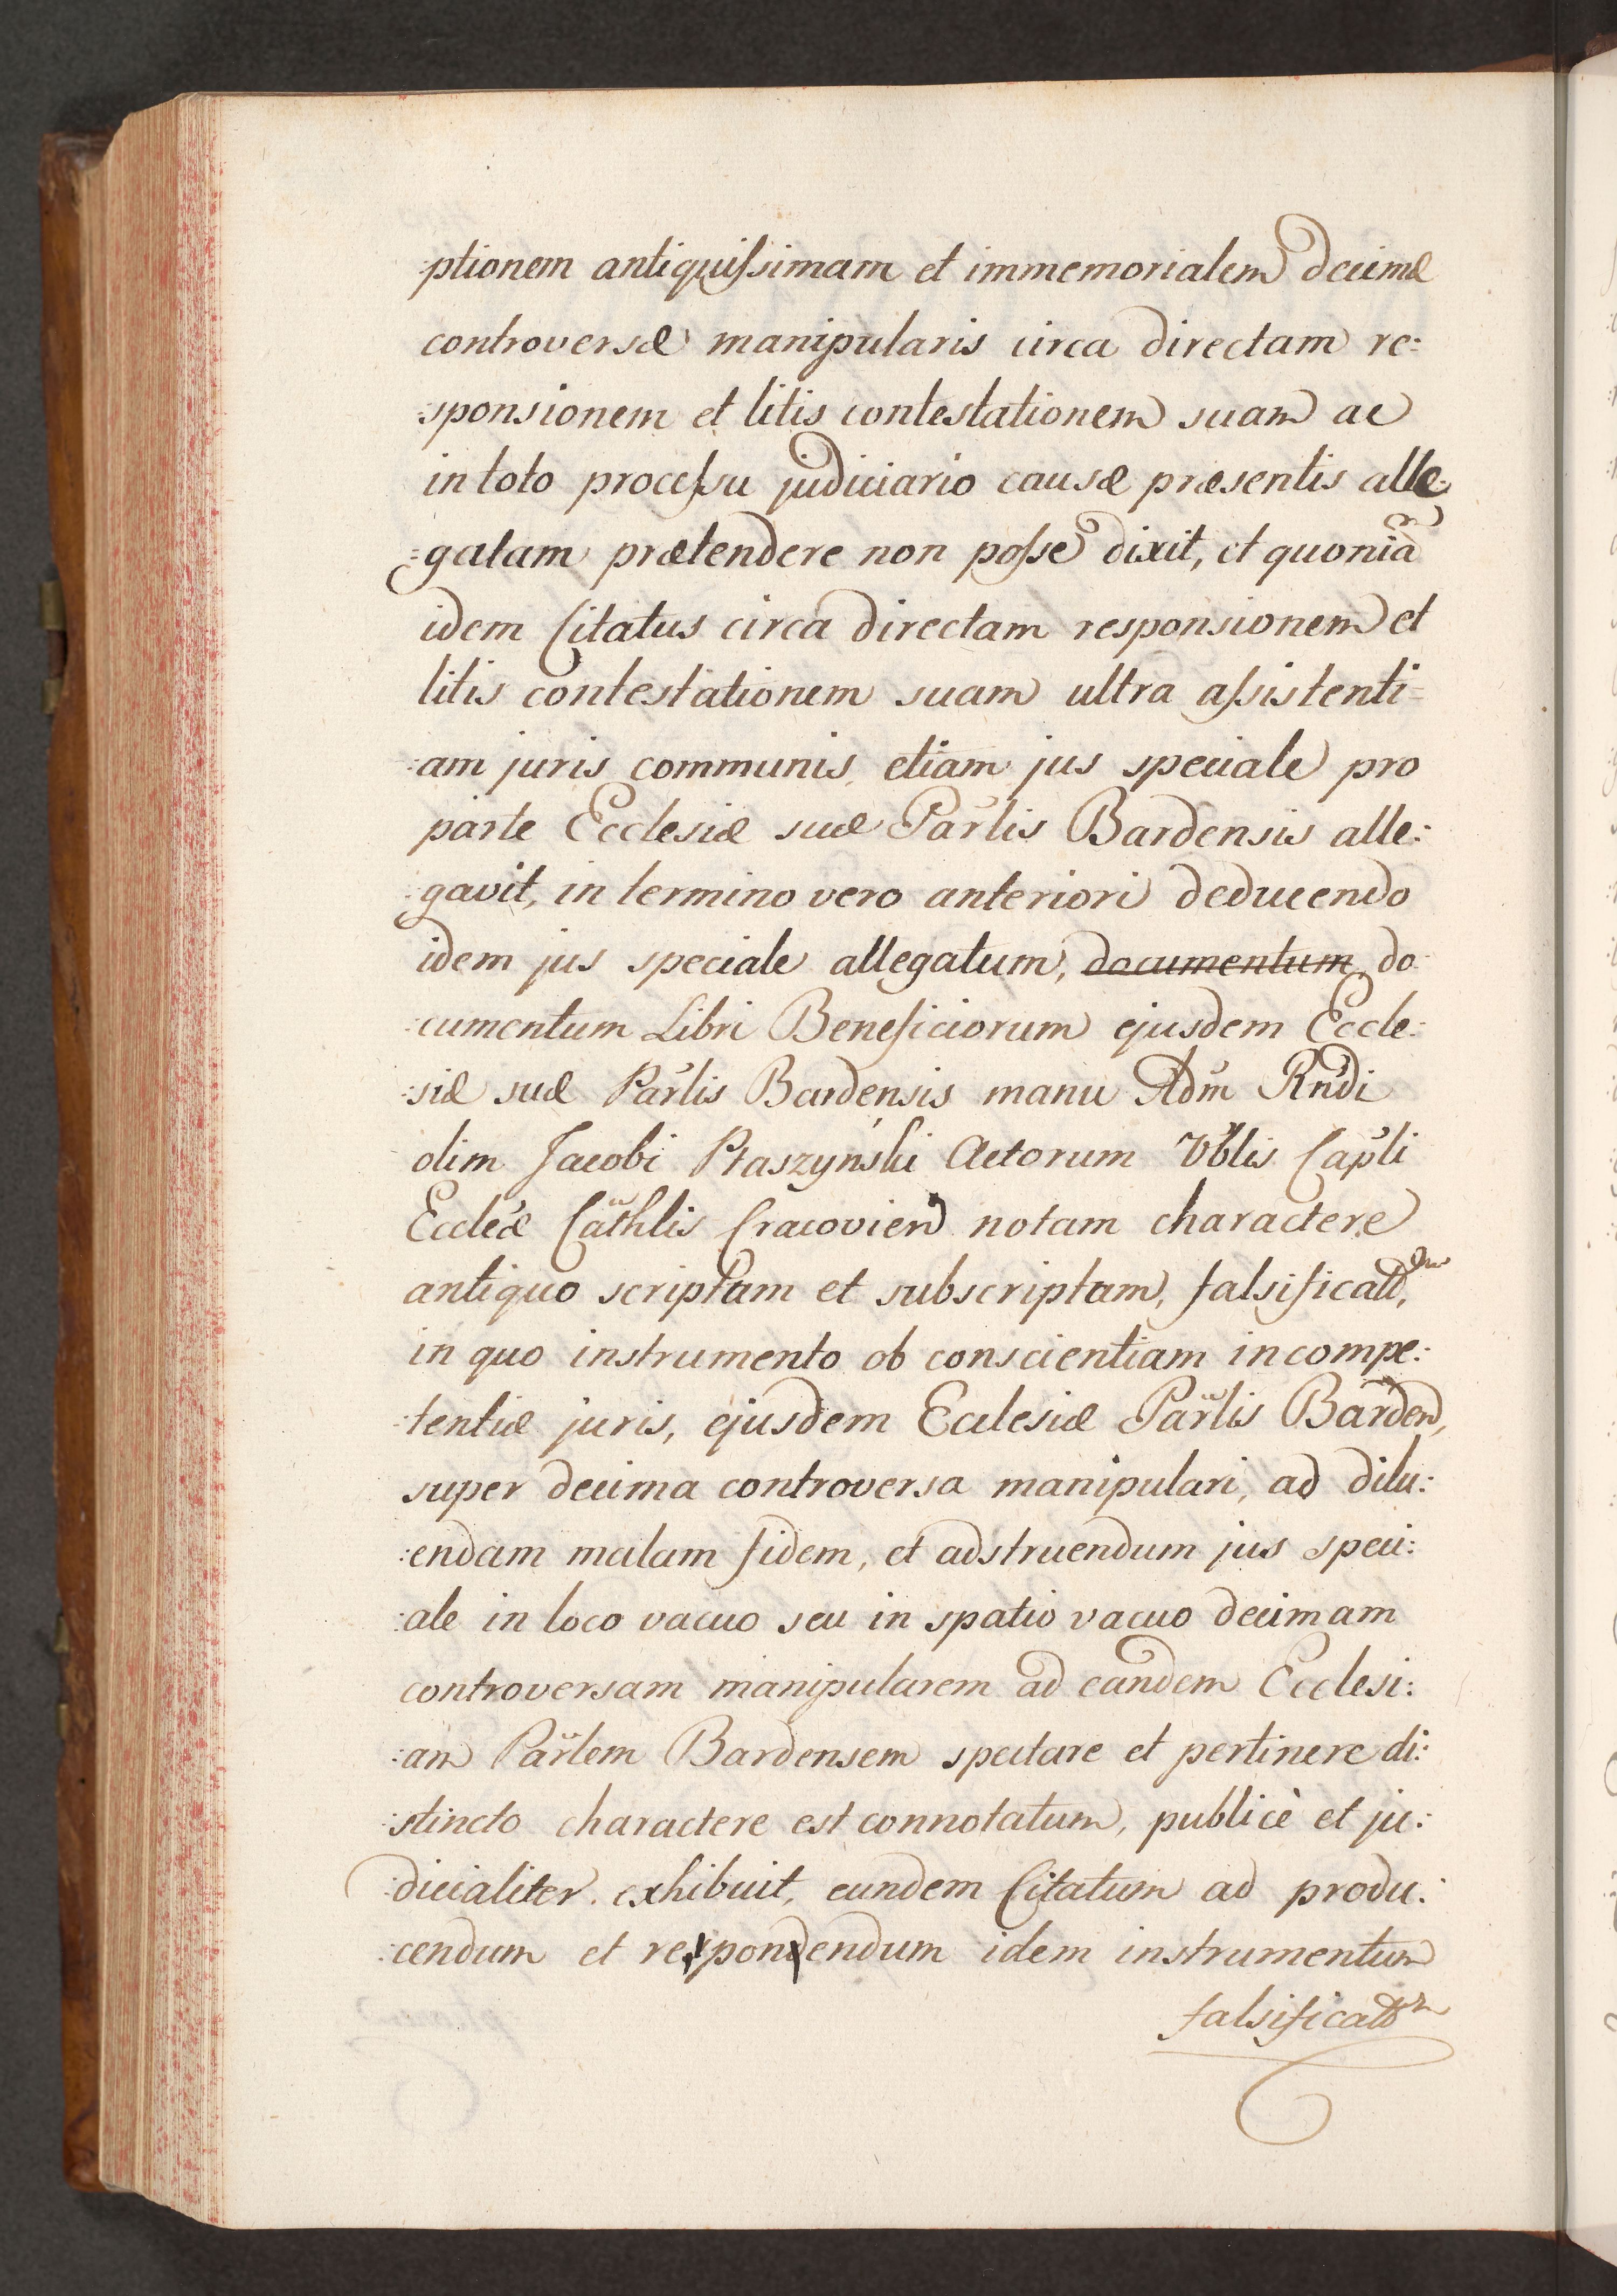 :ptionem antiquissimam et immemorialem decimæ
controversæ manipularis circa directam re:
:sponsionem et litis contestationem suam ac
in toto processu judiciario causæ præsentis alle:
:gatam prætendere non posse dixit, et quoniã
idem Citatus circa directam responsionem et
litis contestationem suam ultra assistenti=
:am juris communis, etiam jus speciale pro
parte Ecclesiæ suæ Parlis Bardensis alle:
:gavit, in termino vero anteriori deducendo
idem jus speciale allegatum, documentum, do:
:cumentum Libri Beneficiorum ejusdem Eccle:
:siæ suæ Parlis Bardensis manu Adm Rndi
olim Jacobi Ptaszyński Actorum Vblis Capli
Eccleæ Cathlis Cracovien notam charactere
antiquo scriptam et subscriptam, falsificatum,
in quo instrumento ob conscientiam incompe:
:tentiæ juris, ejusdem Ecclesiæ Parlis Barden,
super decima controversa manipulari, ad dilu:
:endam malam fidem, et adstruendum jus speci:
:ale in loco vacuo seu in spatio vacuo decimam
controversam manipularem ad eandem Ecclesi:
:am Parlem Bardensem spectare et pertinere di:
:stincto charactere est connotatum, publicè et ju:
:dicialiter exhibuit, eundem Citatum ad produ:
:cendum et respondendum idem instrumentum
falsificatm